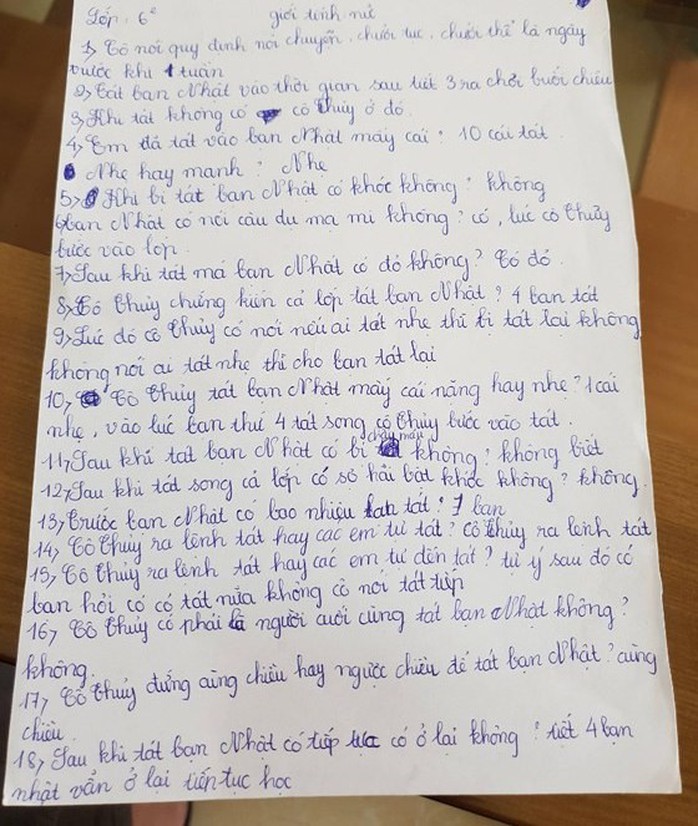 Lớp: 6² giới tính nữ
1, Cô nói quy định nói chuyện, chửi tục, chửi thề là ngày
trước khi 1 tuần
2, Tát bạn Nhật vào thời gian sau tiết 3 ra chơi buổi chiều
3, Khi tát không có cô Thủy ở đó.
4, Em đã tát vào bạn Nhật mấy cái? 10 cái tát
Nhẹ hay mạnh? Nhẹ
5, Khi bị tát bạn Nhật có khóc không? không
6, bạn Nhật có nói câu đu ma mi không? có, lúc cô Thủy
bước vào lớp.
7, Sau khi tát má bạn Nhật có đỏ không? Có đỏ.
8, Cô Thủy chứng kiến cả lớp tát bạn Nhật? 4 bạn tát
9, Lúc đó cô Thủy có nói nếu ai tát nhẹ thì bị tát lại không
không nói ai tát nhẹ thì cho bạn tát lại
10, Cô Thủy tát bạn Nhật mấy cái nặng hay nhẹ? 1 cái
nhẹ, vào lúc bạn thứ 4 tát song cô Thủy bước vào tát.
11, Sau khi tát bạn Nhật có bị chảy máu không? không biết
12, Sau khi tát song cả lớp có sợ hãi bật khóc không? không.
13, Trước bạn Nhật có bao nhiêu bạn tát? 7 bạn
14, Cô Thủy ra lệnh tát hay các em tự tát? cô Thủy ra lệnh tát
15, Cô Thủy ra lệnh tát hay các em tự đến tát? tự ý sau đó có
bạn hỏi cô có tát nữa không cô nói tát tiếp
16, Cô Thủy có phải là người cuối cùng tát bạn Nhật không?
không.
17, Cô Thủy đứng cùng chiều hay ngược chiều để tát bạn Nhật? cùng
chiều.
18, Sau khi tát bạn Nhật có tiếp tục có ở lại không? tiết 4 bạn
nhật vẫn ở lại tiến tục học